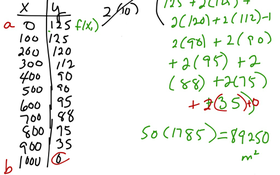 x y
a 0 125 f(x)
100 125
200 120
300 112
400 90
500 90
600 95
700 88
800 75
900 35
b 1000 0
2 10
125 + 2(12
2(120) + 2(112)
2(90) + 2(90)
+ 2(95) + 2
(88) + 2(75)
+ 2(35) + 0
50(1785) = 89250
m²